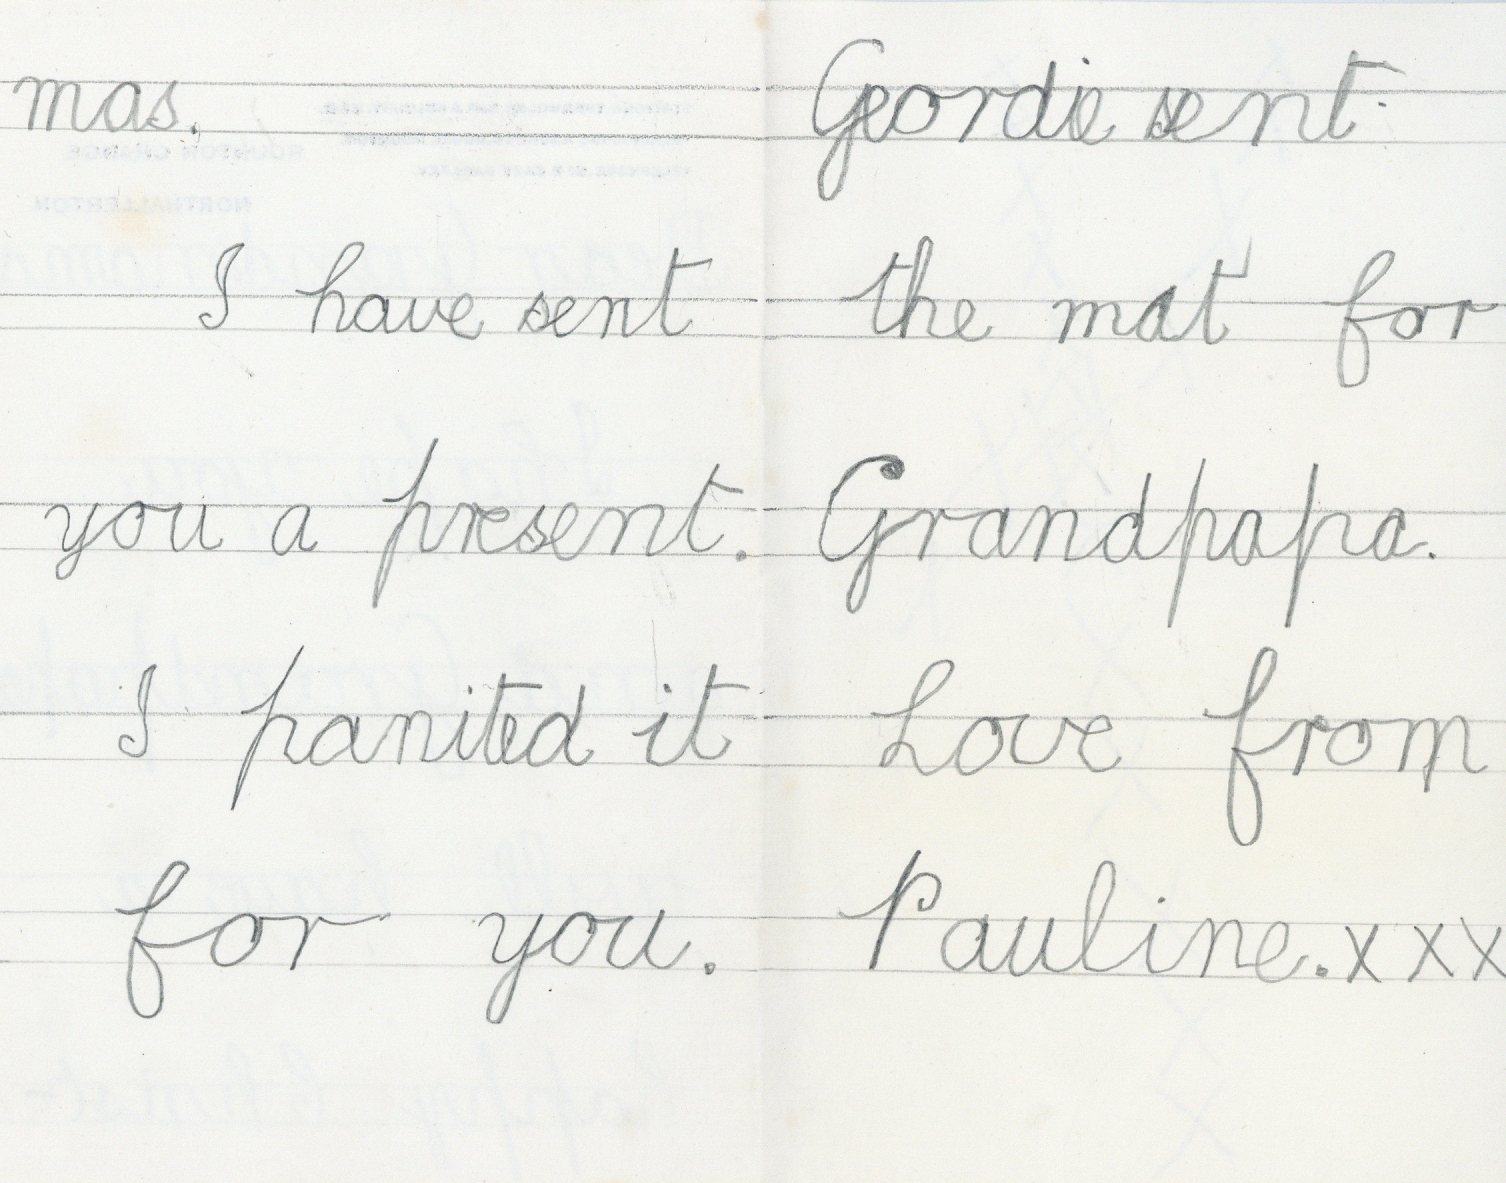 mas.
I have sent
you a present.
I panited it
for you.
Geordie sent
the mat for
Grandpapa.
Love from
Pauline. x x x
ROUNTON GRANGE
NORTHALLERTON